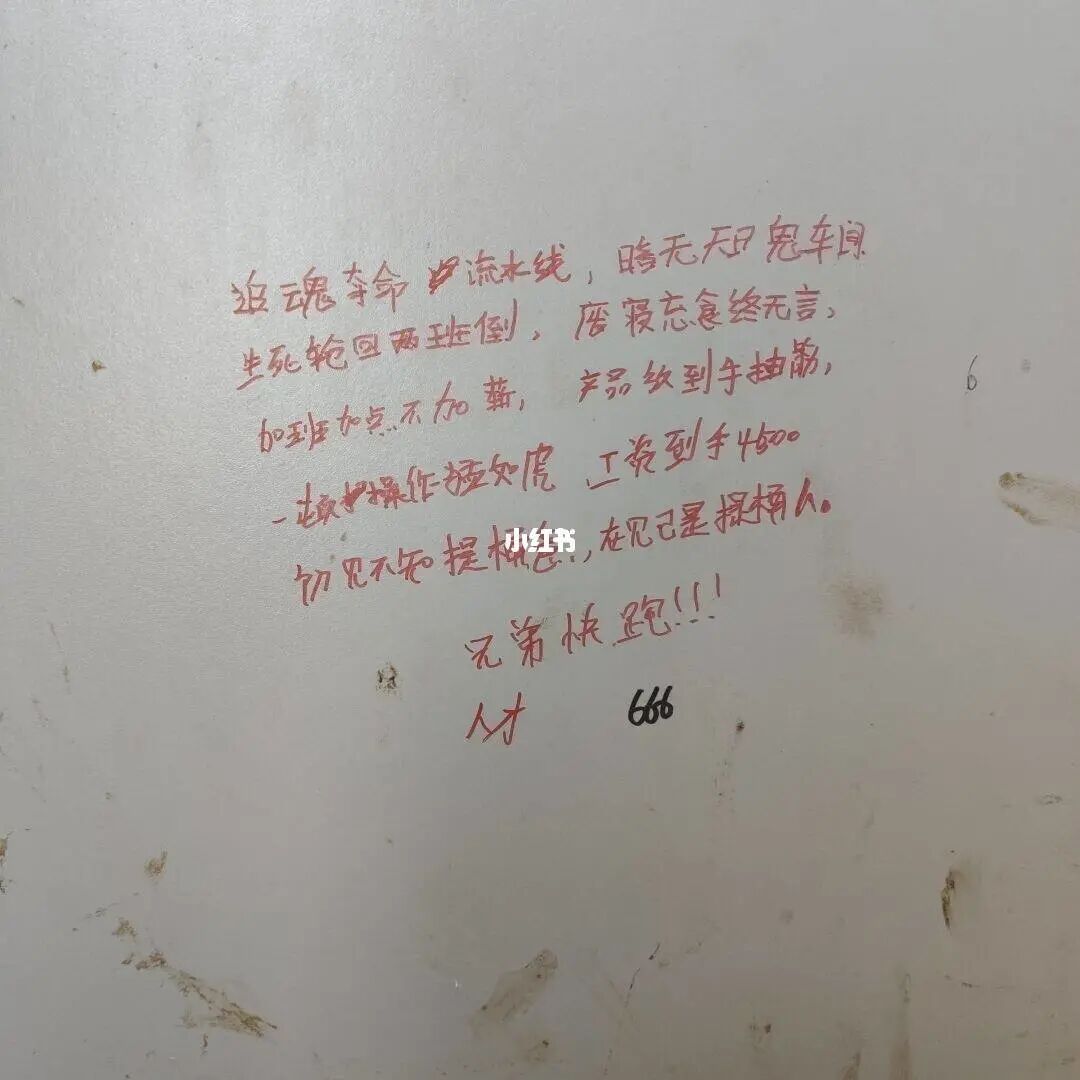 追魂夺命流水线，暗无天日鬼车间
生死轮回两班倒，废寝忘食终无言，
加班加点不加薪，产品级到手抽筋，
一顿操作猛如虎 工资到手4500
6
初见不知提桶意，在见已是提桶人。
小红书
兄弟快跑!!!
人才 666